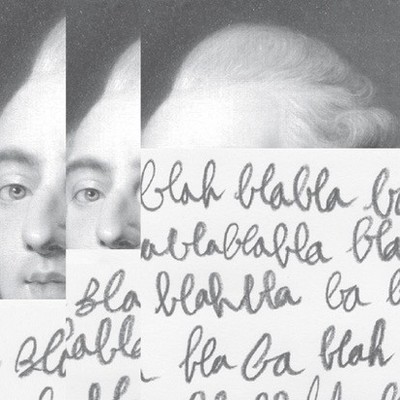 blah blabla ba
ablablabla bla
bla blahbla ba b
abla bla ba blah
bla